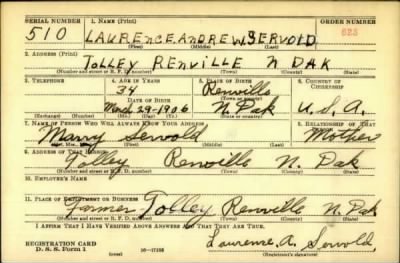 SERIAL NUMBER 1. NAME (Print) ORDER NUMBER
510 LAURENCE ANDREW SERVOLD 623
(First) (Middle) (Last)
2. ADDRESS (Print)
TOLLEY RENVILLE N DAK
(Number and street or R. F. D. number) (Town) (County) (State)
3. TELEPHONE 4. AGE IN YEARS 5. PLACE OF BIRTH 6. COUNTRY OF CITIZENSHIP
34 Renville
DATE OF BIRTH (Town or county)
March 29-1906 N Dak U.S.A.
(Exchange) (Number) (Mo.) (Day) (Yr.) (State or country)
7. NAME OF PERSON WHO WILL ALWAYS KNOW YOUR ADDRESS 8. RELATIONSHIP OF THAT PERSON
Marry Servold Mother
(Mr., Mrs., Miss) (First) (Middle) (Last)
9. ADDRESS OF THAT PERSON
Tolley Renville N. Dak
(Number and street or R. F. D. number) (Town) (County) (State)
10. EMPLOYER'S NAME
11. PLACE OF EMPLOYMENT OR BUSINESS
Tolley Renville N. Dak
(Number and street or R. F. D. number) (Town) (County) (State)
I AFFIRM THAT I HAVE VERIFIED ABOVE ANSWERS AND THAT THEY ARE TRUE.
REGISTRATION CARD Laurence A. Servold
D. S. S. Form 1 (over) (Registrant's signature)